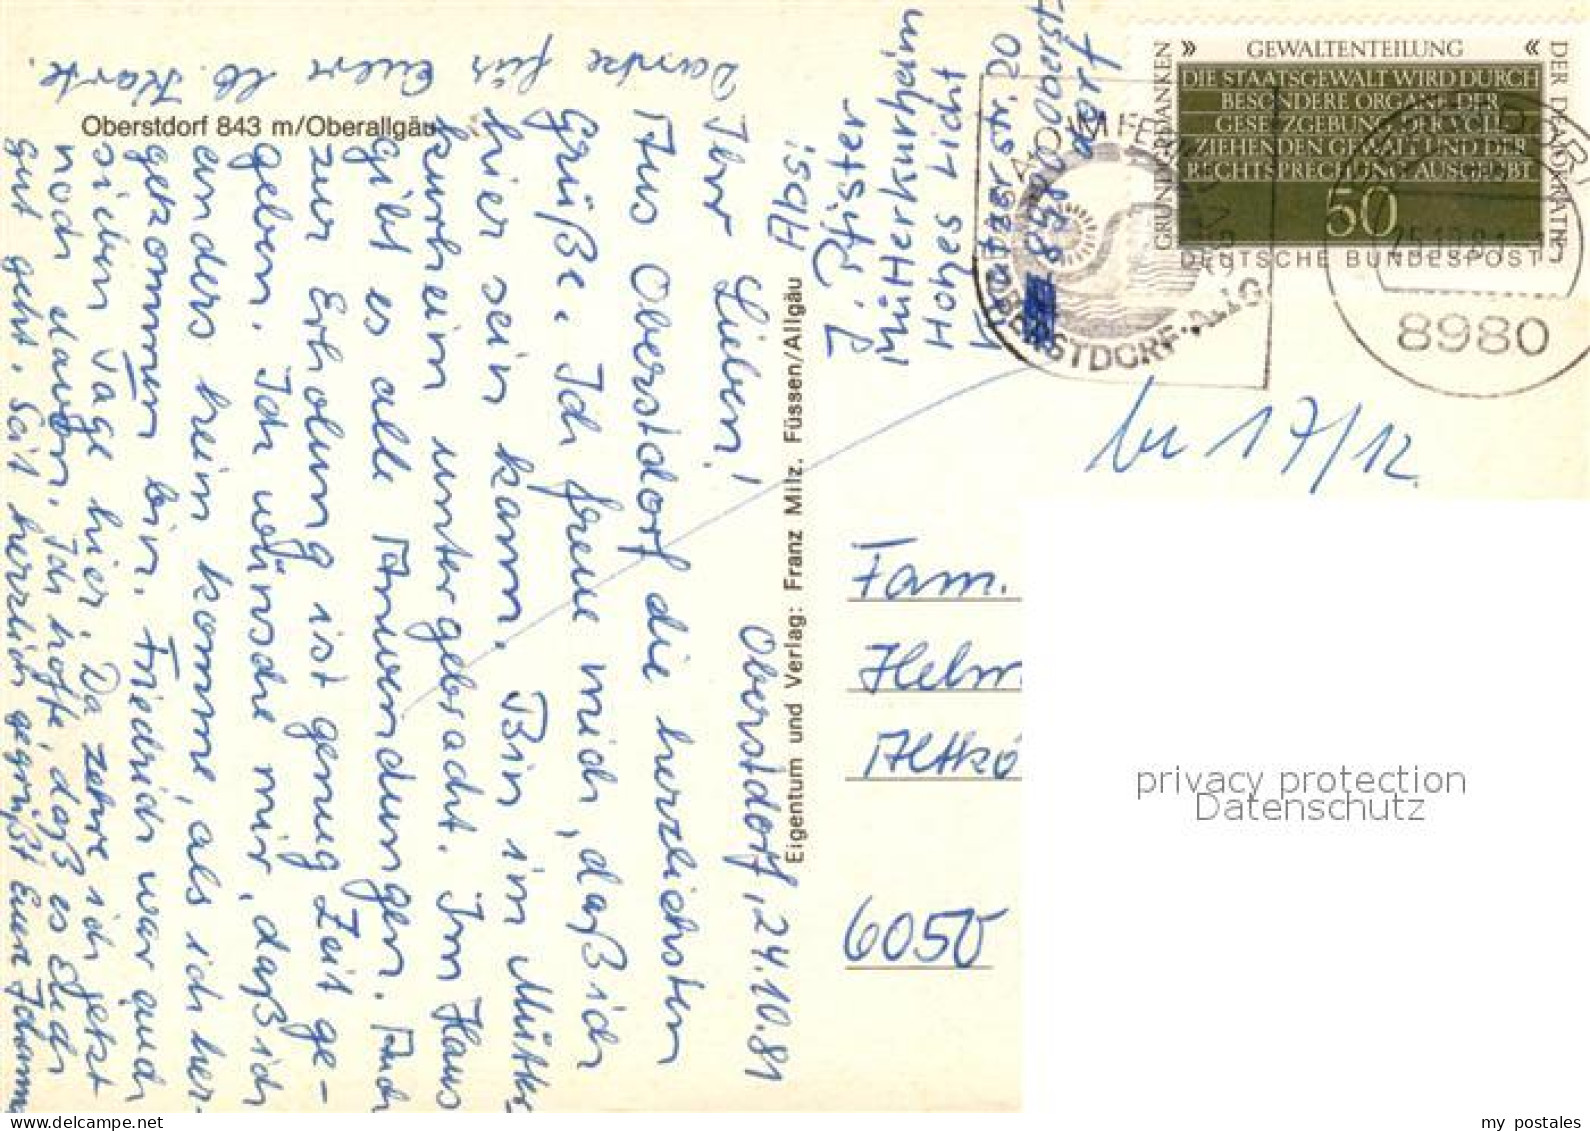 Oberstdorf 843 m/Oberallgäu
Danke für Euere lb. Karte.
Oberstdorf, 24.10.81
Ihr Lieben!
Aus Oberstdorf die herzlichsten
Grüße. Ich freue mich, daß ich
hier sein kann. Bin im Mütter
kurheim untergebracht. Im Haus
gibt es alle Anwendungen. Auch
zur Erholung ist genug Zeit ge-
geben. Ich wünsche mir, daß ich
anders heim komme, als ich her-
gekommen bin. Friedrich war auch
sieben Tage hier. Da zehre ich jetzt
noch davon. Ich hoffe, daß es Euch
gut geht. Seid herzlich gegrüßt Eure
Eigentum und Verlag: Franz Milz. Füssen/Allgäu
Abs:
Mütterkurheim
Hohes Licht
str. 20
8980 Oberst-
dorf
» GEWALTENTEILUNG «
GRUNDGEDANKEN
DER DEMOKRATIE
DIE STAATSGEWALT WIRD DURCH
BESONDERE ORGANE DER
GESETZGEBUNG, DER VOLL-
ZIEHENDEN GEWALT UND DER
RECHTSPRECHUNG AUSGEÜBT
50
DEUTSCHE BUNDESPOST
OBERSTDORF
8980
17/12
Fam.
Helm
Altkö
6050
privacy protection
Datenschutz
my postales